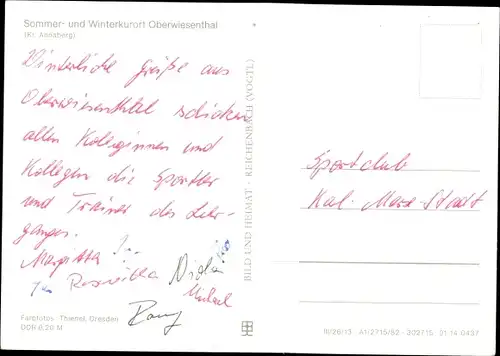 Sommer- und Winterkurort Oberwiesenthal
(Kr. Annaberg)
Winterliche Grüße aus
Oberwiesenthal schicken
allen Kolleginnen und
Kollegen die Sportler
und Trainer des Lehr-
ganges.
Margitta
Roswitha
Michael
BILD UND HEIMAT · REICHENBACH (VOGTL)
Sportclub
Karl-Marx-Stadt
Farbfotos: Thienel, Dresden
DDR 0,20 M
III/26/13 A1/2715/82 302715 21 14 0437